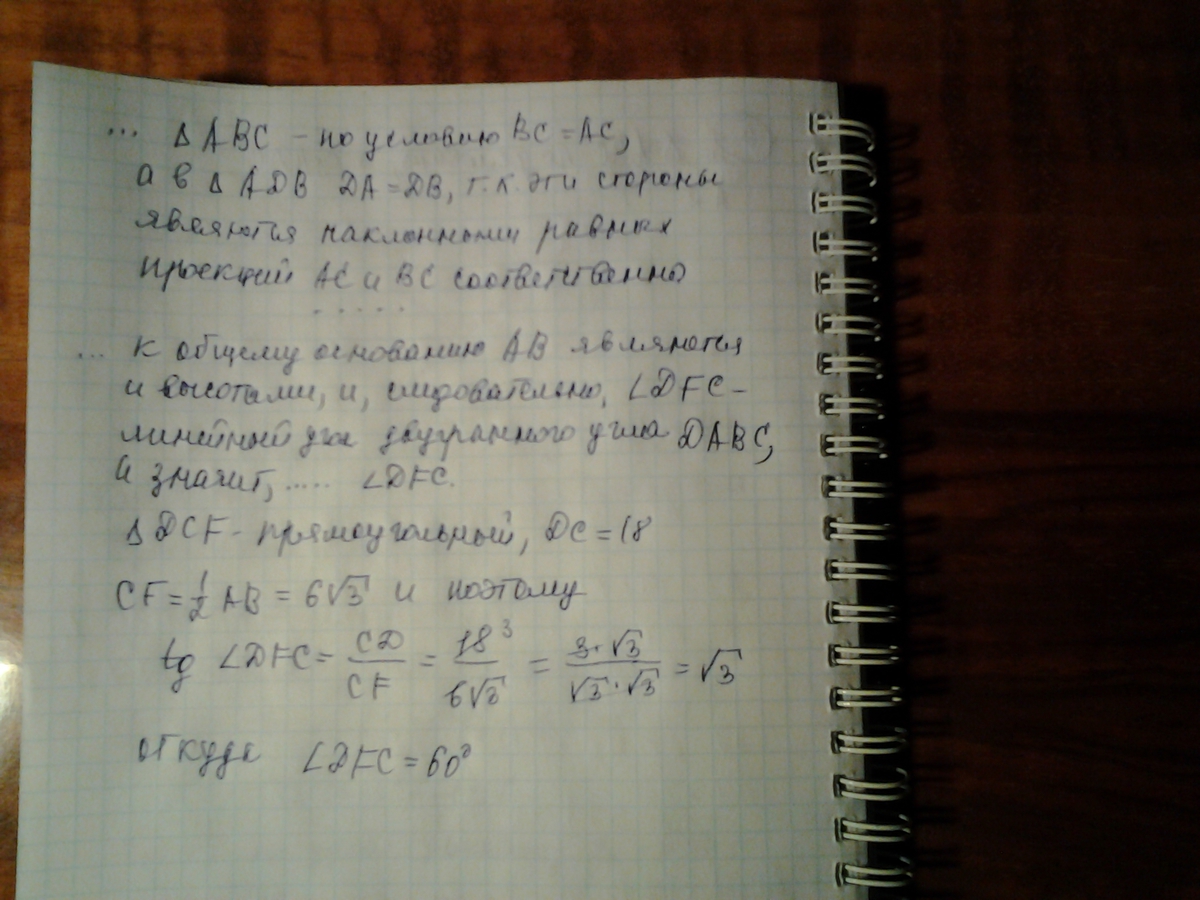 ... Δ ABC – по условию BC = AC,
а в Δ ADB DA = DB, т.к. эти стороны
являются наклонными равных
проекций AC и BC соответственно
.....
... к общему основанию AB являются
и высотами, и, следовательно, ∠DFC –
линейный угол двугранного угла DABC,
и значит, ..... ∠DFC.
Δ DCF - прямоугольный, DC = 18
CF = 1/2 AB = 6√3 и поэтому
tg ∠DFC = CD/CF = 18³/6√3 = 3·√3/√3·√3 = √3
откуда ∠DFC = 60°